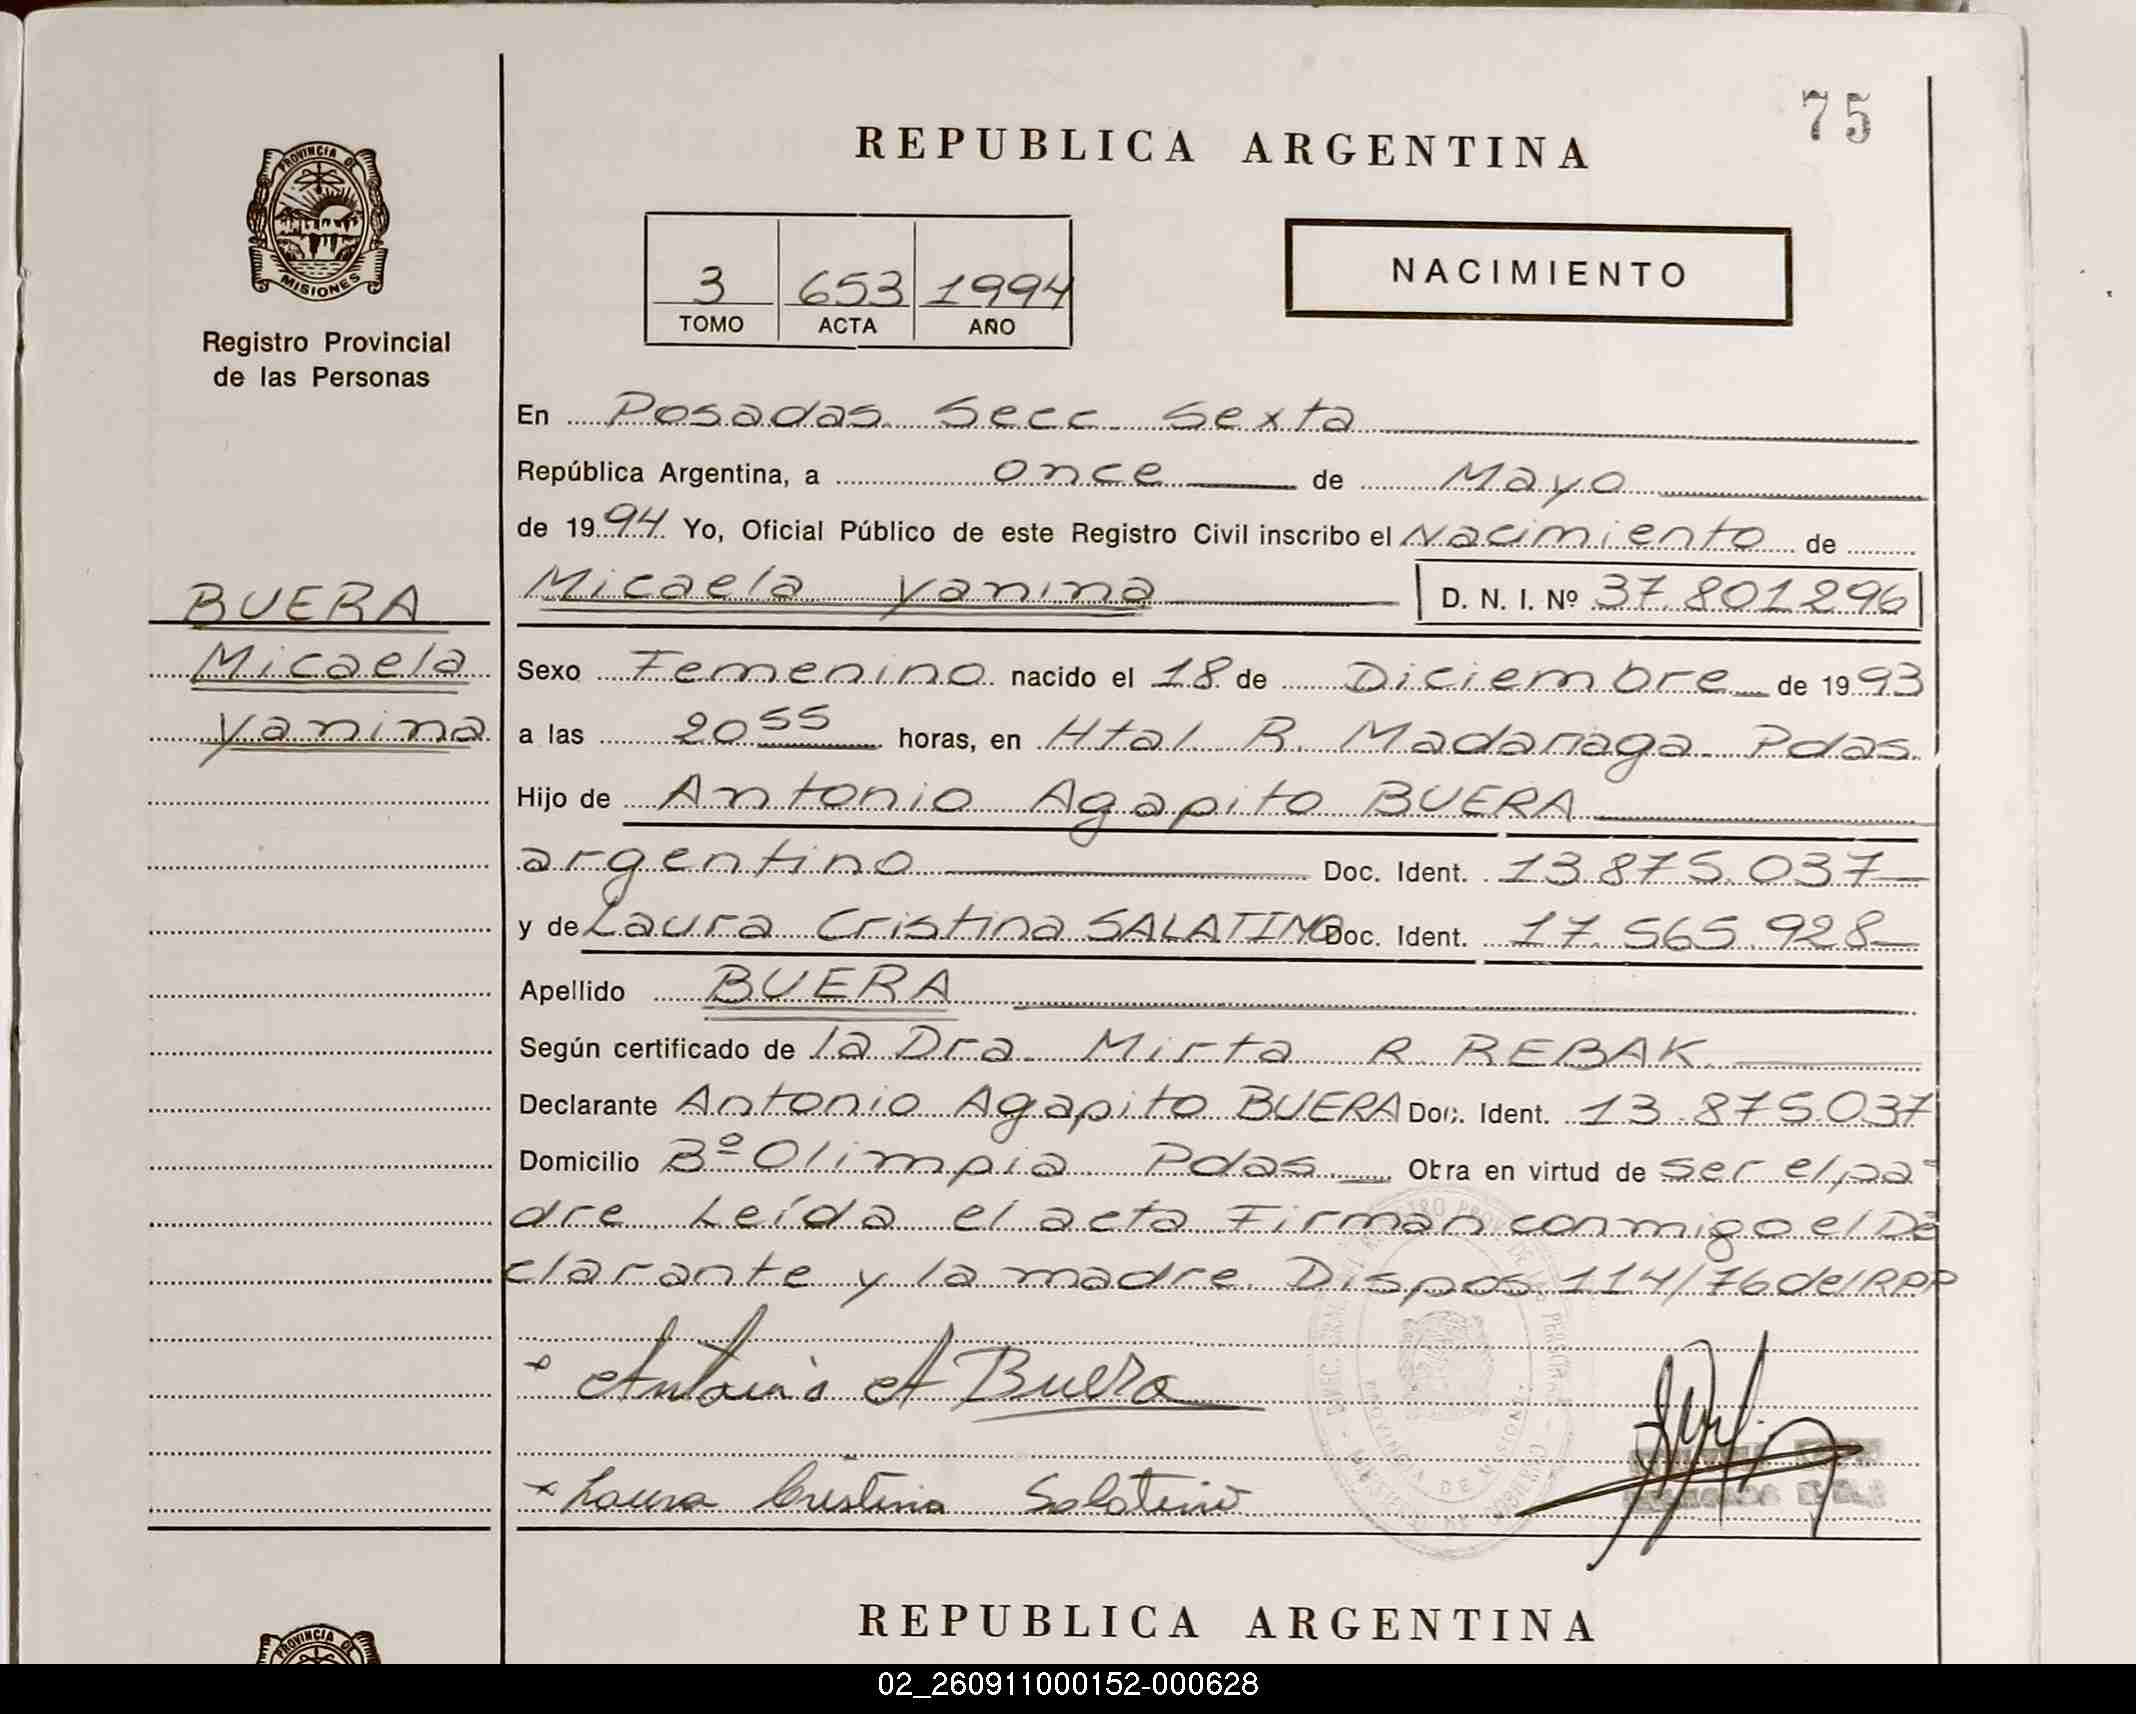 75
REPUBLICA ARGENTINA
PROVINCIA DE
MISIONES
Registro Provincial
de las Personas
3 653 1994
TOMO ACTA AÑO
NACIMIENTO
En Posadas Secc Sexta
República Argentina, a once de Mayo
de 1994 Yo, Oficial Público de este Registro Civil inscribo el Nacimiento de
BUERA
Micaela
Yanina
Micaela Yanina D. N. I. Nº 37.801296
Sexo Femenino nacido el 18 de Diciembre de 1993
a las 20 55 horas, en Htal R. Madariaga Pdas.
Hijo de Antonio Agapito BUERA
argentino Doc. Ident. 13.875.037
y de Laura Cristina SALATINO Doc. Ident. 17.565.928
Apellido BUERA
Según certificado de la Dra Mirta R. REBAK
Declarante Antonio Agapito BUERA Doc. Ident. 13.875.037
Domicilio Bº Olimpia Pdas Obra en virtud de ser el pa-
dre Leída el acta Firman conmigo el De
clarante y la madre. Dispos. 114/76 del RPP
Antonio A Buera
Laura Cristina Salatino
PROVINCIA DE MISIONES
REPUBLICA ARGENTINA
PROVINCIA DE
02_260911000152-000628